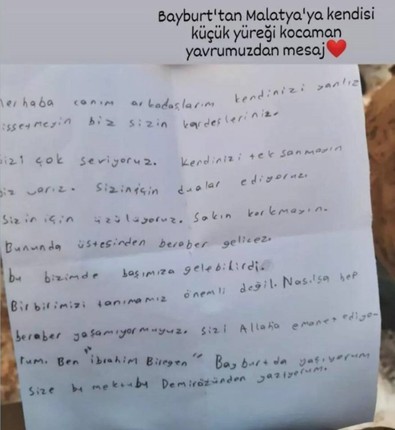 Bayburt'tan Malatya'ya kendisi
küçük yüreği kocaman
yavrumuzdan mesaj❤️
erhaba canım arkadaşlarım kendinizi yanlız
issetmeyin biz sizin kardeşleriniz.
izi çok seviyoruz. kendinizi tek sanmayın
iz varız. Siziniçin dualar ediyoruz
Sizin için üzülüyoruz. Sakın korkmayın.
Bununda üstesinden beraber gelicez
bu bizimde başımıza gelebilirdi.
Birbirimizi tanımamız önemli değil. Nasılsa hep
beraber yaşamıyormuyuz. Sizi Allaha emanet ediyo-
rum. Ben "ibrahim Birgen" Bayburt da yaşıyorum
size bu mektubu Demirözünden yazıyorum.